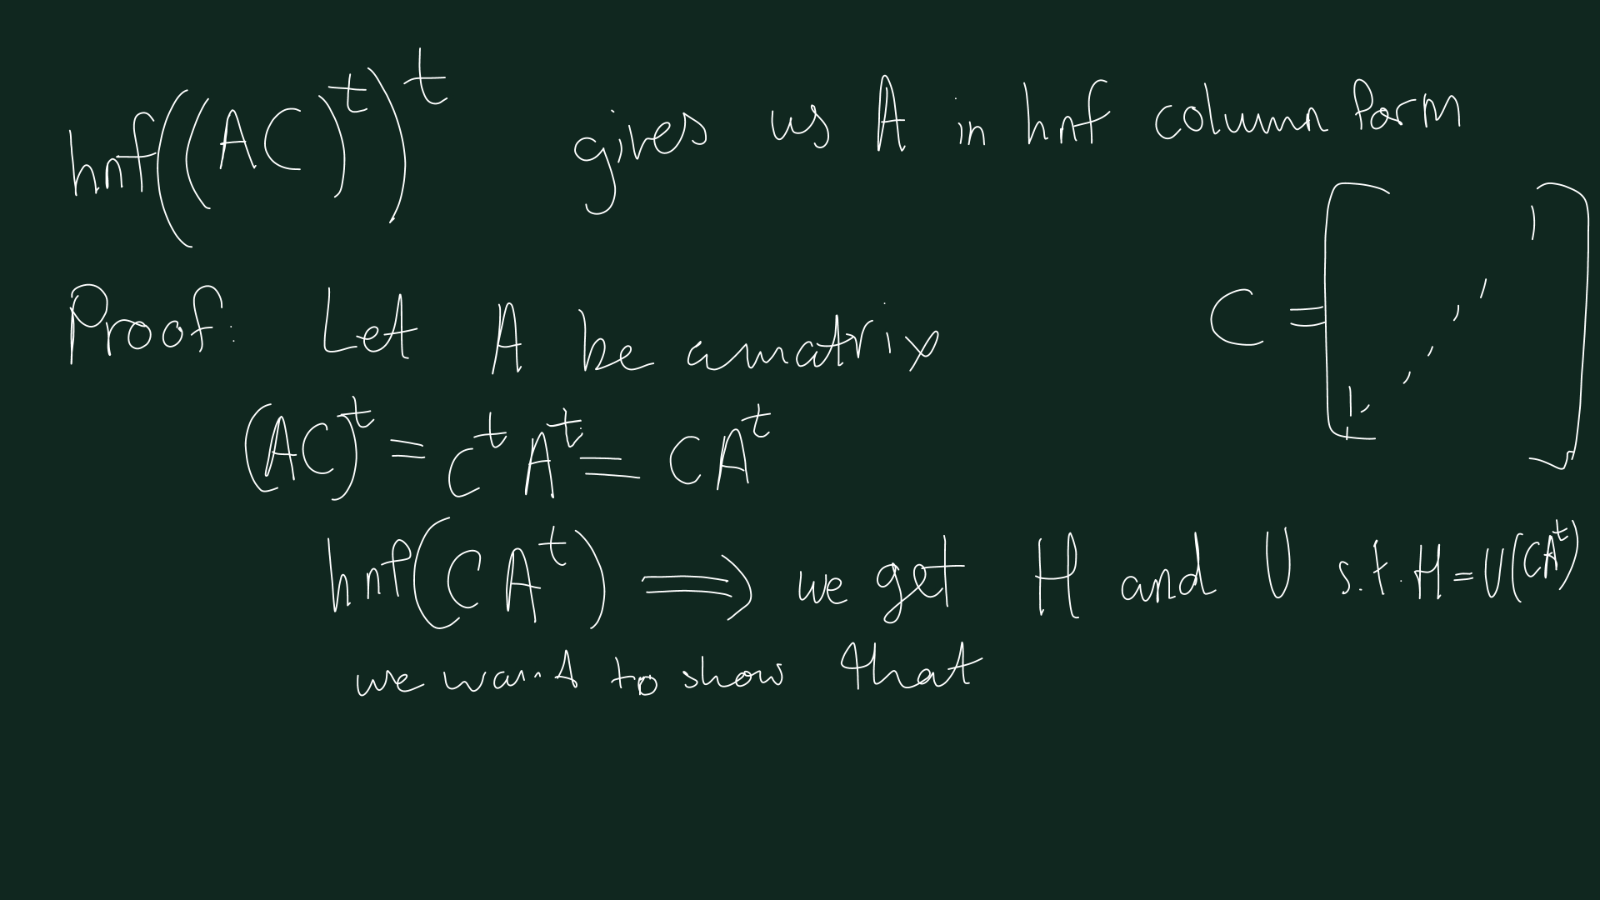 hnf((AC)^t)^t gives us A in hnf column form
C = [1 ⋰ 1]
Proof: Let A be a matrix
(AC)^t = C^t A^t = CA^t
hnf(CA^t) ⟹ we get H and U s.t. H = U(CA^t)
we want to show that